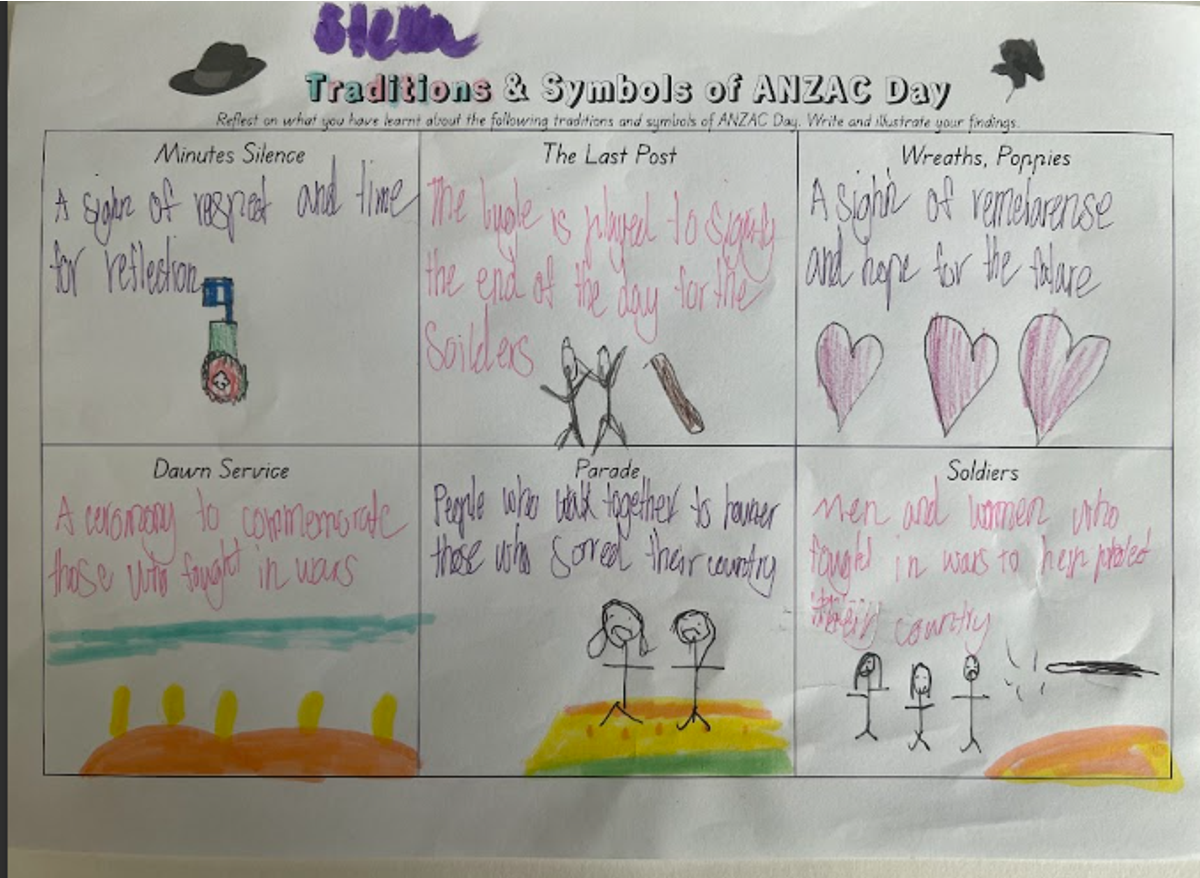 Stella
Traditions & Symbols of ANZAC Day
Reflect on what you have learnt about the following traditions and symbols of ANZAC Day. Write and illustrate your findings.
Minutes Silence
A sighn of respect and time
for reflection
The Last Post
The bugle is played to signify
the end of the day for the
Soilders
Wreaths, Poppies
A sighn of remebarense
and hope for the futare
Dawn Service
A ceromony to commemorate
those who fought in wars
Parade
People who walk together to honner
those who serred their country
Soldiers
Men and women who
fought in wars to help protect
their country